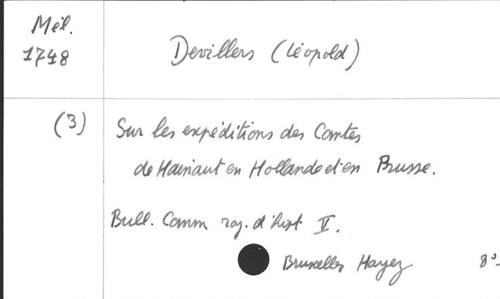 Mél.
1748
Devillers (Léopold)
(3) Sur les expéditions des Comtes
de Hainaut en Hollande et en Prusse.
Bull. Comm roy. d'hist V.
Bruxelles Hayez 8°